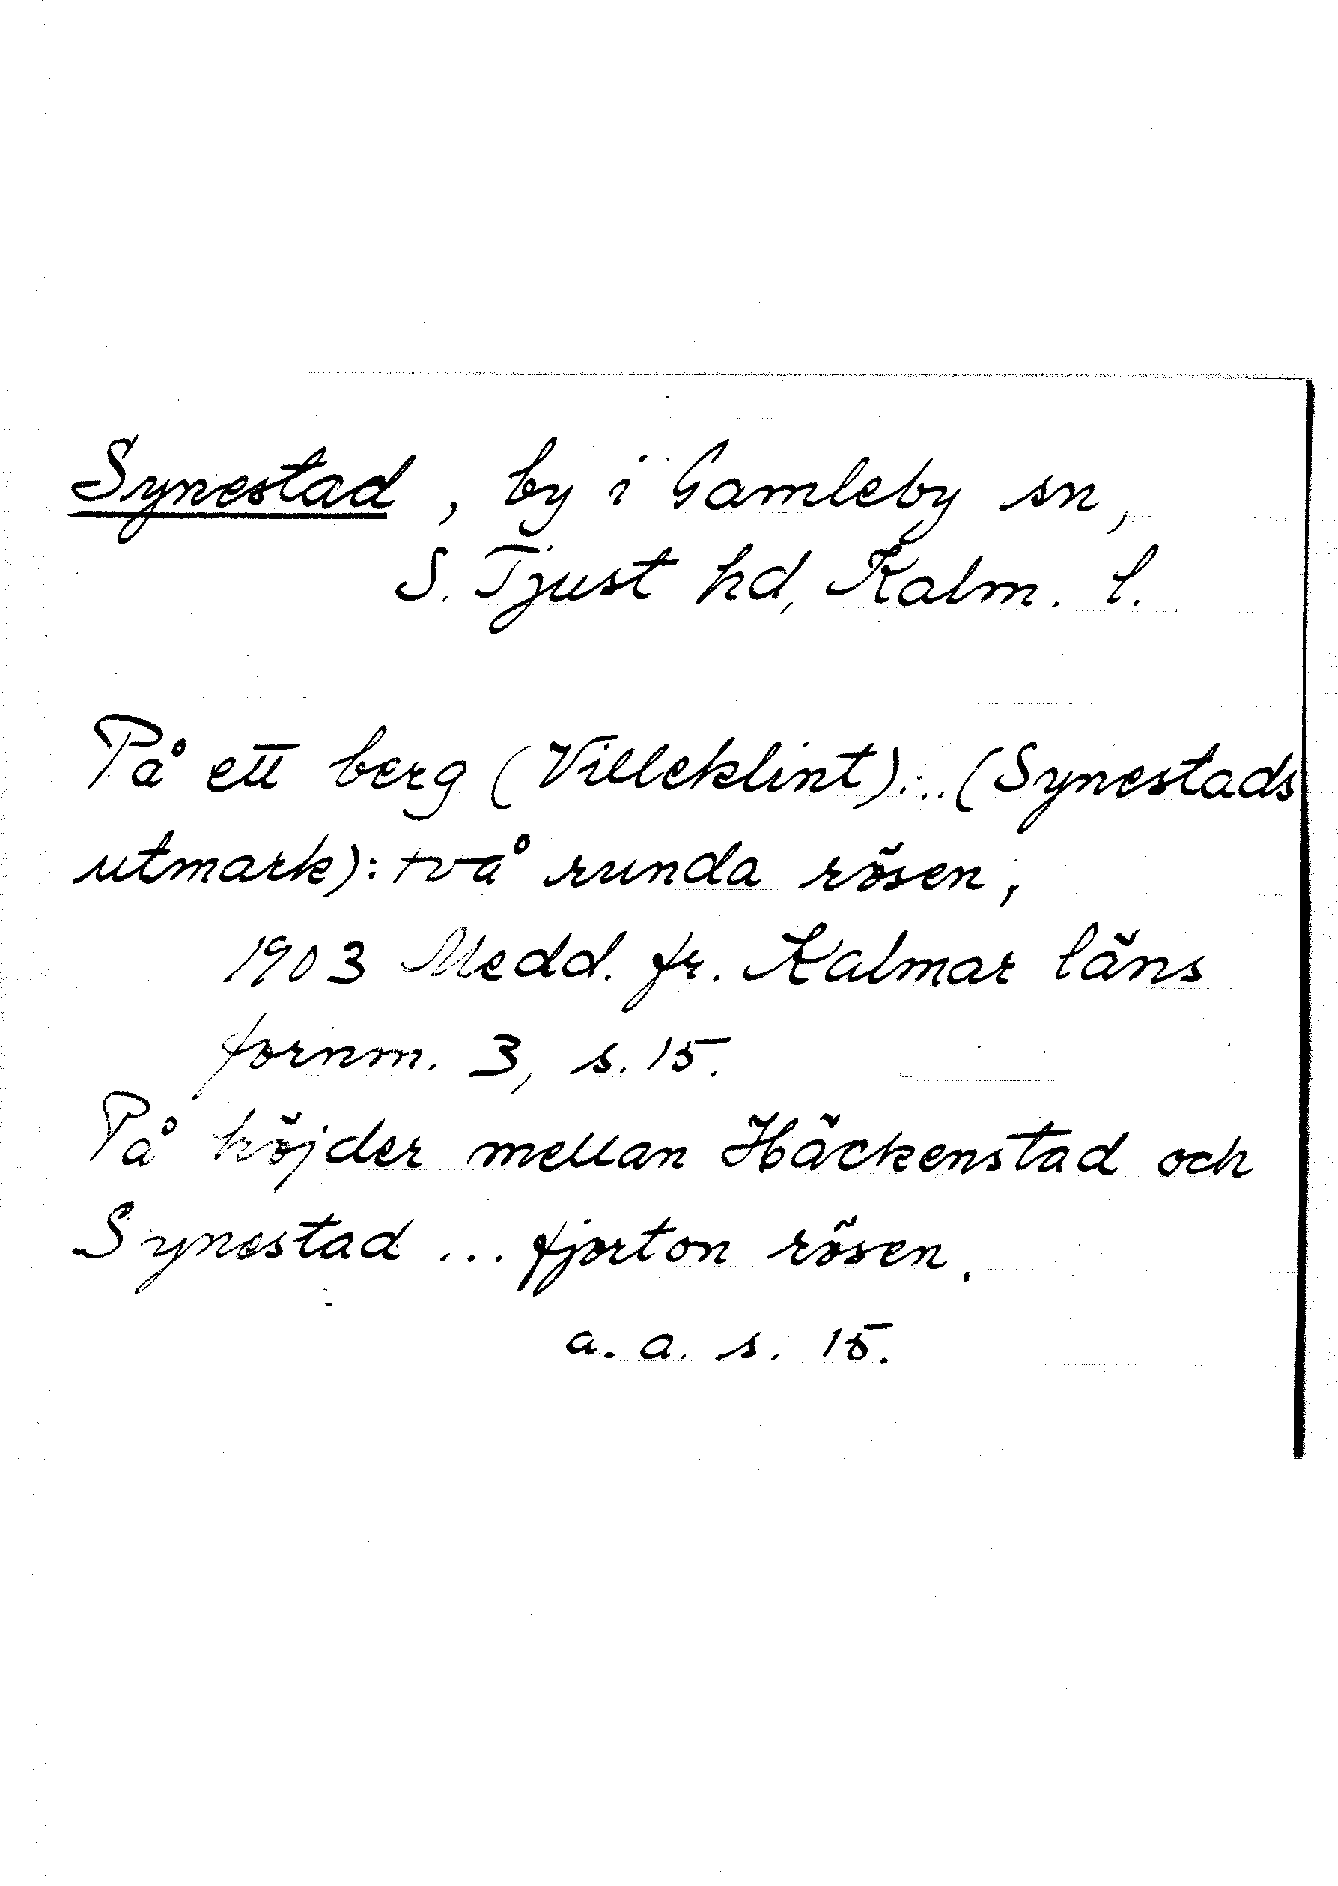 Synestad, by i Gamleby sn,
S. Tjust hd, Kalm. l.
På ett berg (Villeklint)... (Synestads
utmark): två runda rösen,
1903 Medd. fr. Kalmar läns
fornm. 3, s. 15.
På höjder mellan Häckenstad och
Synestad ... fjorton rösen.
a. a. s. 15.